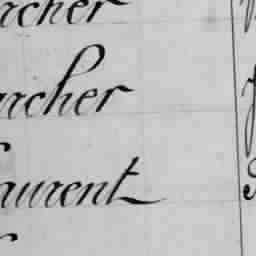 rcher
archer
aurent